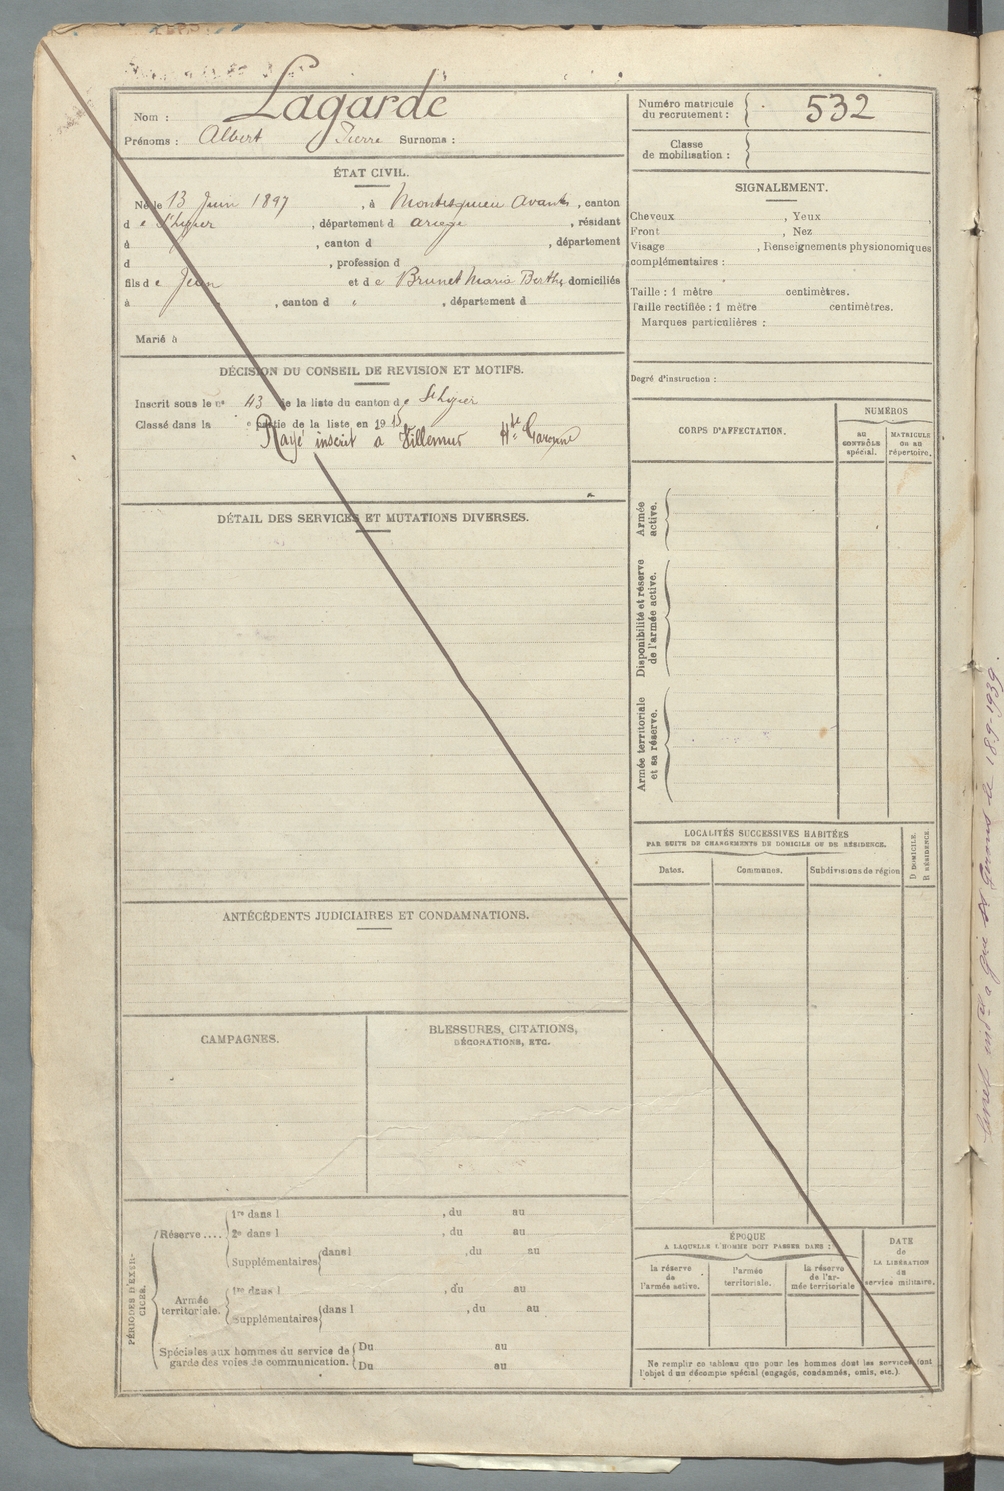 Nom : Lagarde
Prénoms : Albert Pierre Surnoms :
Numéro matricule du recrutement : 532
Classe de mobilisation :
ÉTAT CIVIL.
Né le 13 Juin 1897, à Montesquieu Avantès, canton
d e St Lizier, département d ariege, résidant
à , canton d , département
d , profession d
fils d e Jean et d e Brunet Maria Berthe domiciliés
à , canton d , département d
Marié à
SIGNALEMENT.
Cheveux , Yeux
Front , Nez
Visage , Renseignements physionomiques
complémentaires :
Taille : 1 mètre centimètres.
Taille rectifiée : 1 mètre centimètres.
Marques particulières :
Degré d'instruction :
DÉCISION DU CONSEIL DE REVISION ET MOTIFS.
Inscrit sous le n° 43 de la liste du canton de St Lizier
Classé dans la e partie de la liste en 19 15
Rayé inscrit à Villemur Hte Garonne
CORPS D'AFFECTATION.
NUMÉROS
AU CONTRÔLE spécial.
MATRICULE OU AU répertoire.
Armée active.
Disponibilité et réserve de l'armée active.
Armée territoriale et sa réserve.
DÉTAIL DES SERVICES ET MUTATIONS DIVERSES.
LOCALITÉS SUCCESSIVES HABITÉES
PAR SUITE DE CHANGEMENTS DE DOMICILE OU DE RÉSIDENCE.
Dates.
Communes.
Subdivisions de région
D DOMICILE.
R RÉSIDENCE.
ANTÉCÉDENTS JUDICIAIRES ET CONDAMNATIONS.
CAMPAGNES.
BLESSURES, CITATIONS,
DÉCORATIONS, ETC.
PÉRIODES D'EXERCICES.
Réserve....
1re dans l , du au
2e dans l , du au
Supplémentaires dans l , du au
Armée territoriale.
1re dans l , du au
Supplémentaires dans l , du au
Spéciales aux hommes du service de garde des voies de communication.
Du au
Du au
ÉPOQUE
A LAQUELLE L'HOMME DOIT PASSER DANS :
la réserve de l'armée active.
l'armée territoriale.
la réserve de l'armée territoriale
DATE de LA LIBÉRATION du service militaire.
Ne remplir ce tableau que pour les hommes dont les services font
l'objet d'un décompte spécial (engagés, condamnés, omis, etc.)